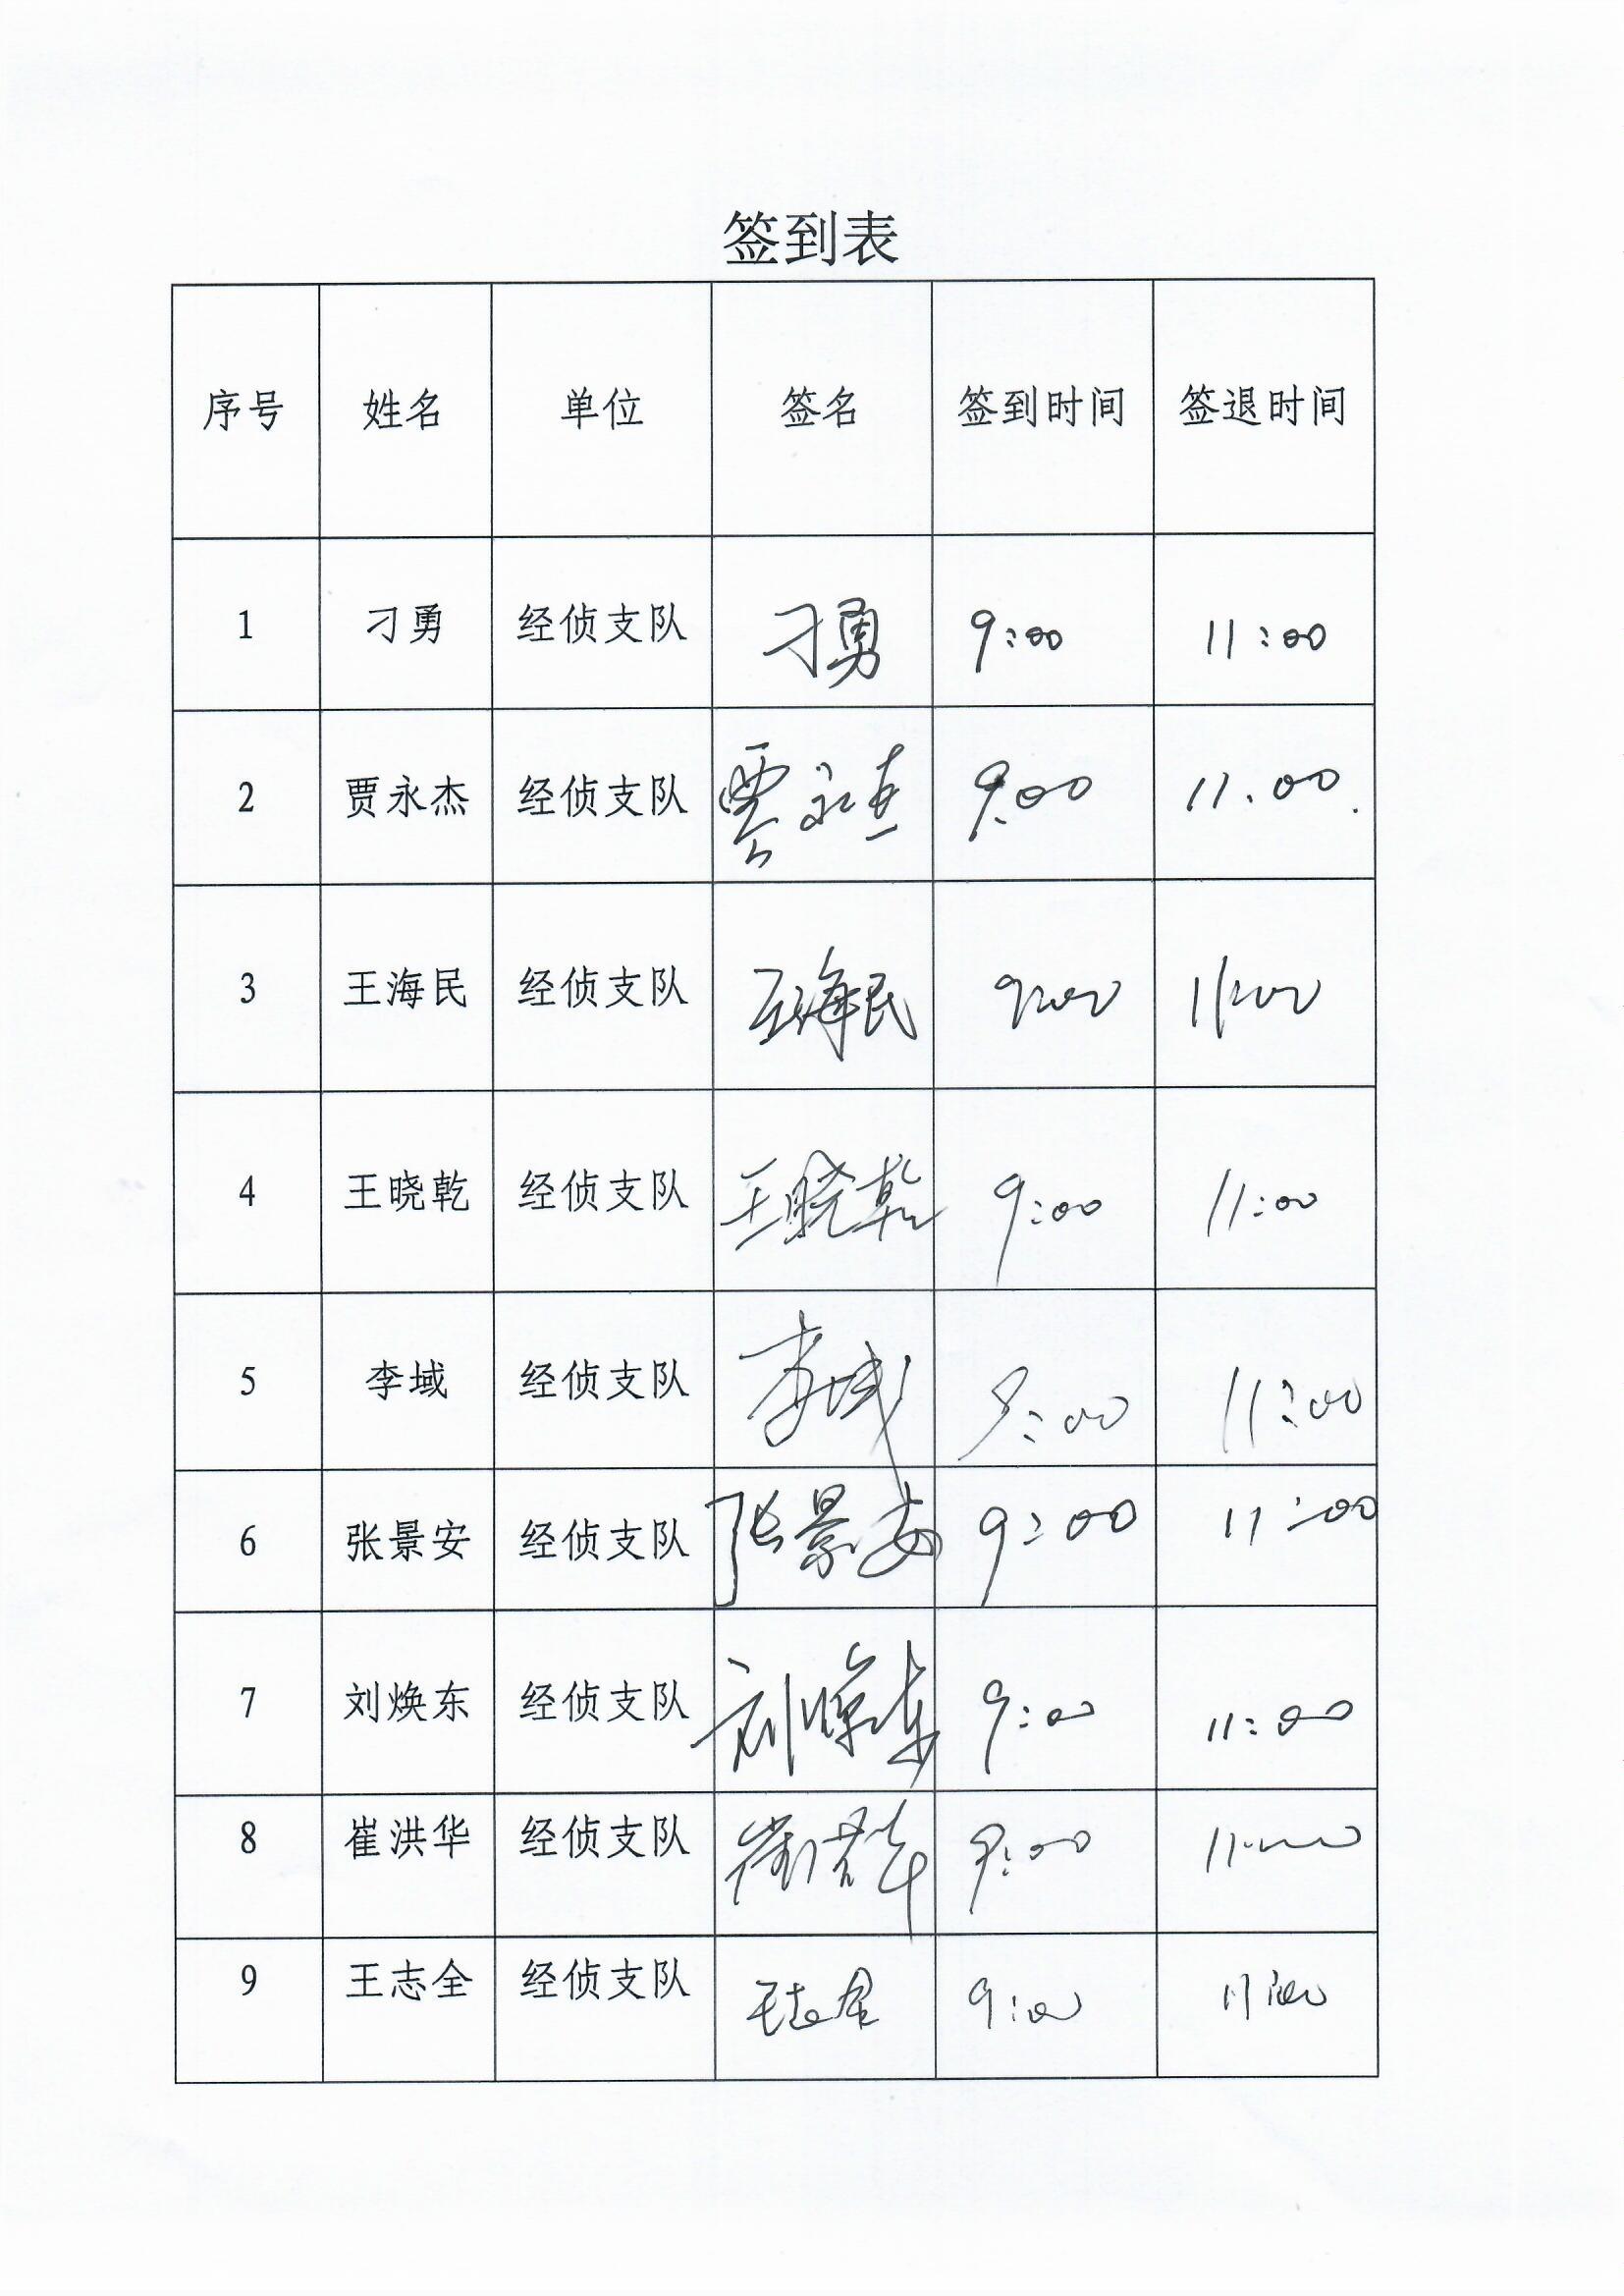 签到表
序号 姓名 单位 签名 签到时间 签退时间
1 刁勇 经侦支队 刁勇 9:00 11:00
2 贾永杰 经侦支队 贾永杰 9:00 11:00
3 王海民 经侦支队 王海民 9:00 11:00
4 王晓乾 经侦支队 王晓乾 9:00 11:00
5 李域 经侦支队 李域 9:00 11:00
6 张景安 经侦支队 张景安 9:00 11:00
7 刘焕东 经侦支队 刘焕东 9:00 11:00
8 崔洪华 经侦支队 崔洪华 9:00 11:00
9 王志全 经侦支队 王志全 9:00 11:00